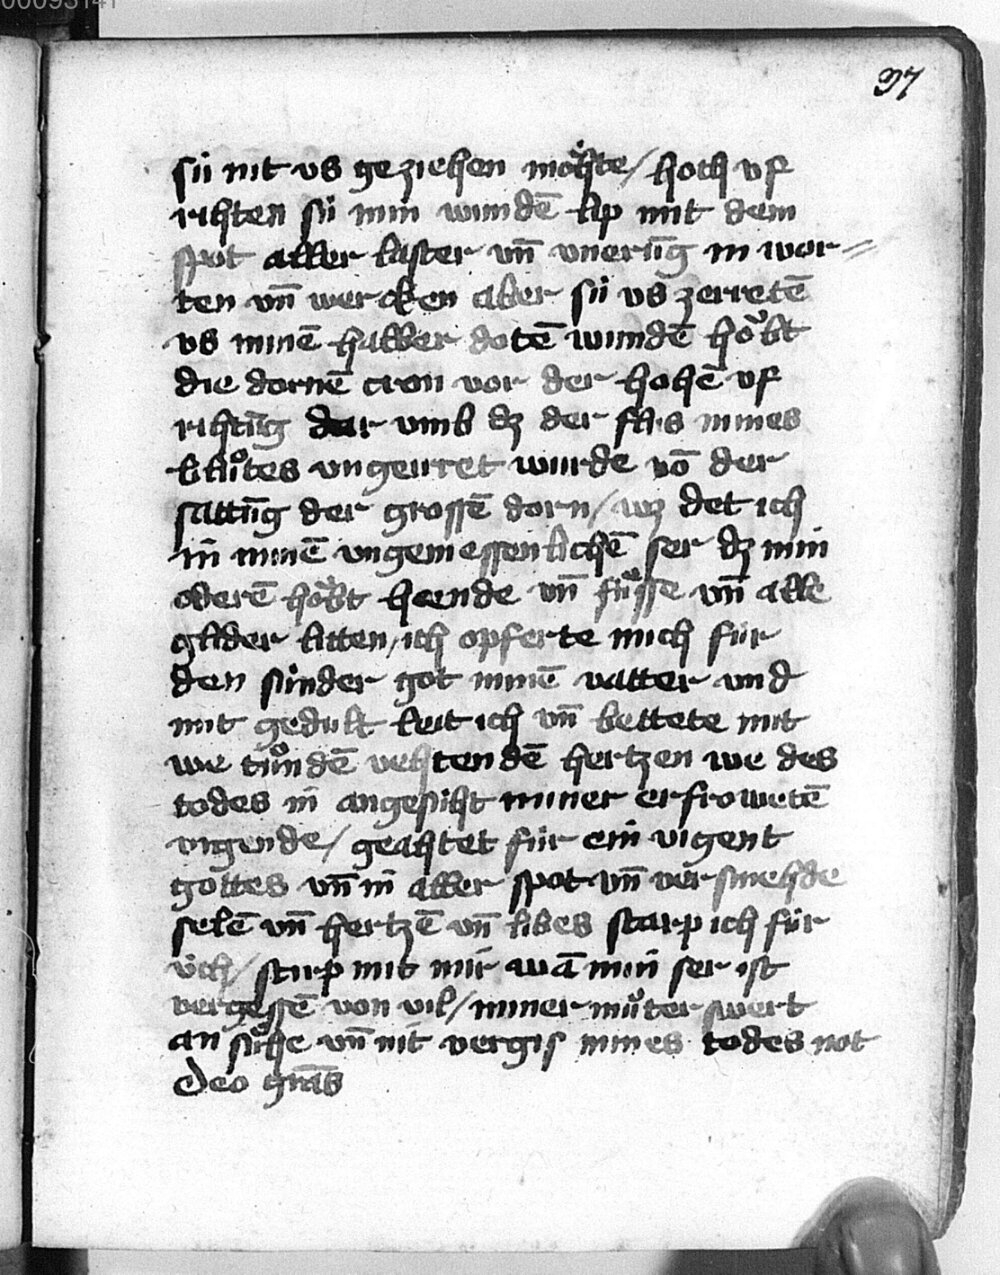 00093141
97
sü nit vs geziehen moͤhte / hoch vf
rihten sü min wundē lip mit dem
spot aller laster vn̄ vnerūg in wor=
ten vn̄ wercken aber sü vs zerretē
vs minē halber dotē wundē hoͮbt
die dornē cron vor der hohē vf
rihtūg dar vmb dz der flis mines
bluͦtes vngeirret wurde vō der
sattūg der grossē dorn / wz det ich
in minē vngemessenlichē ser dz min
oderē hoͮbt haende vn̄ fuͤsse vn̄ alle
glider litten / ich opferte mich für
den sünder got minē vatter vnd
mit gedult leit ich vn̄ bettete mit
we tuͦndē vehtendē hertzen we des
todes in angesiht miner erfrowetē
vigende / geahtet für ein vigent
gottes vn̄ in aller spot vn̄ versmehde
selē vn̄ hertzē vn̄ libes starp ich für
üch / stirp mit mir wā min ser ist
vergessē von vil / miner muͦter swert
an suͦche vn̄ nit vergis mines todes not
Deo gr̄as